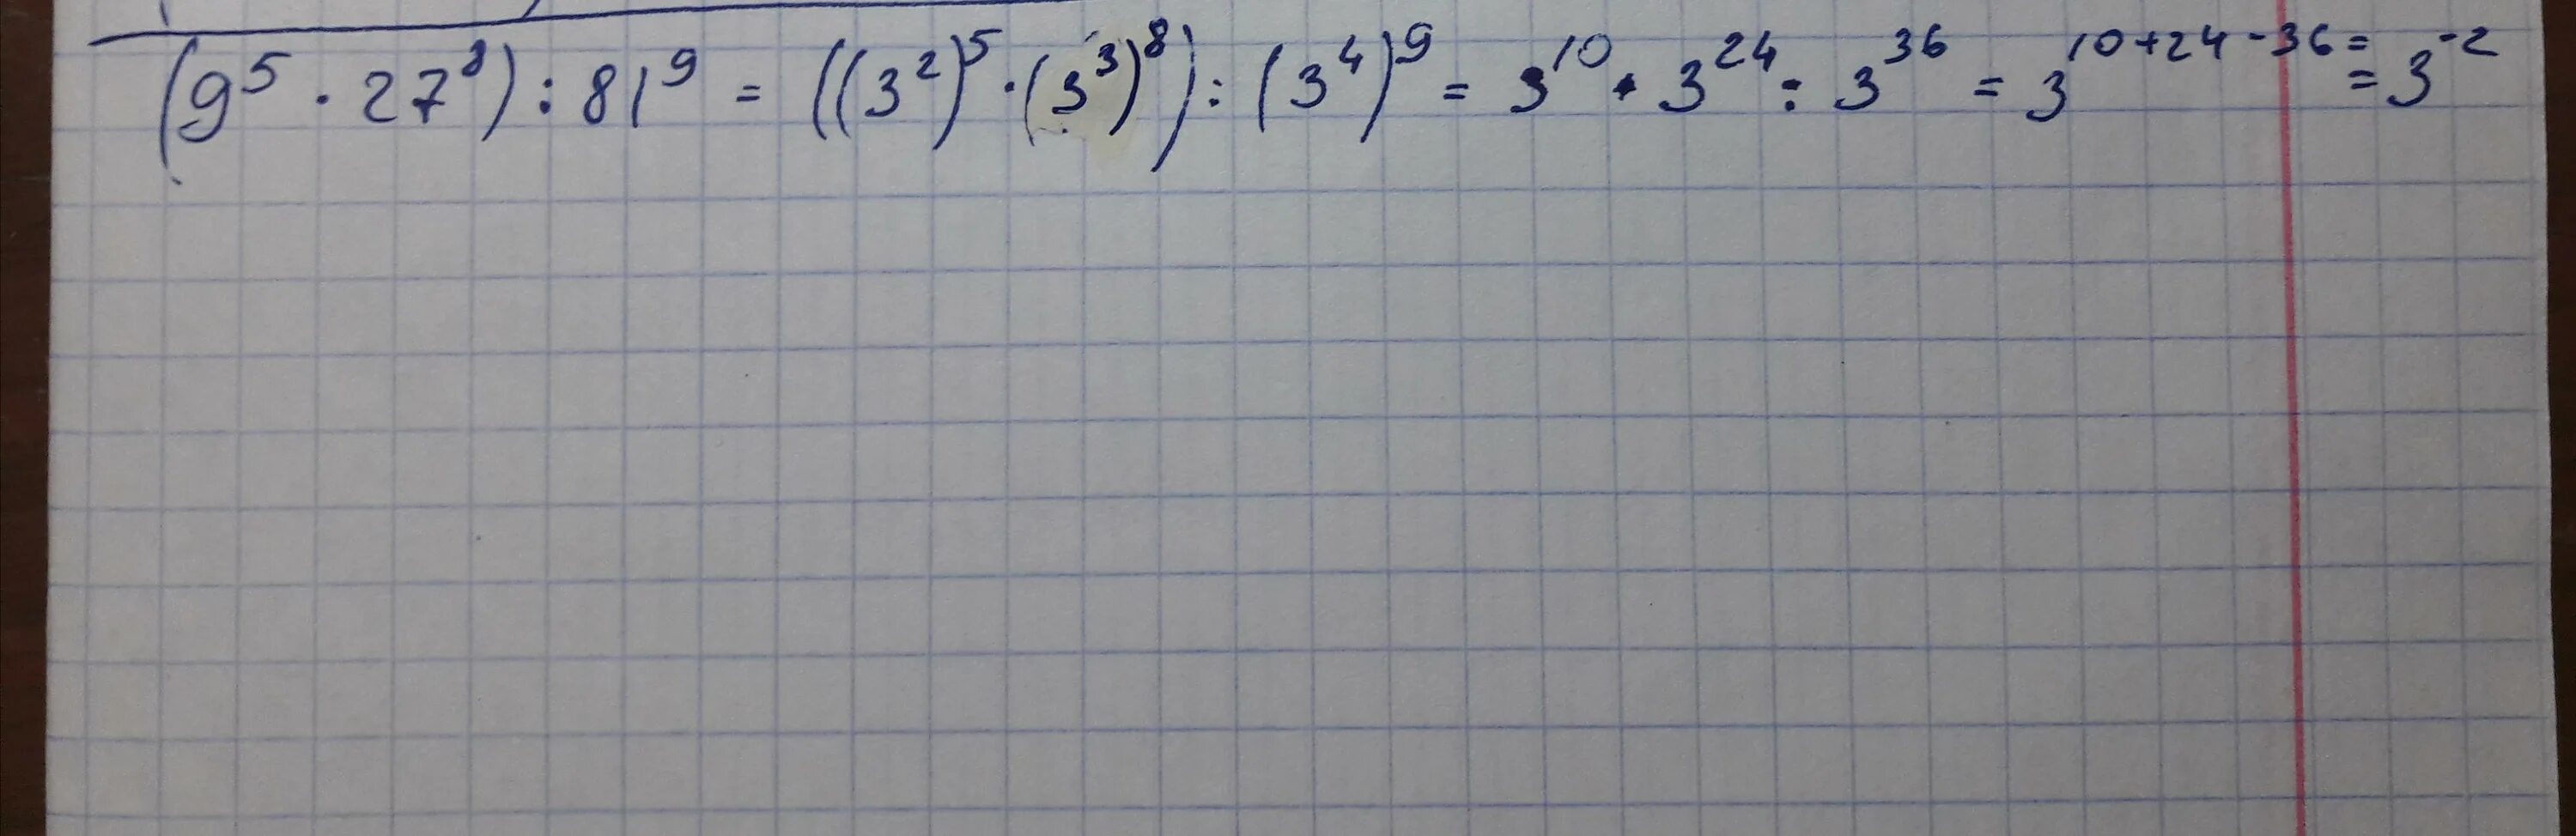 (9⁵ · 27⁸) : 81⁹ = ((3²)⁵ · (3³)⁸) : (3⁴)⁹ = 3¹⁰ · 3²⁴ : 3³⁶ = 3¹⁰⁺²⁴⁻³⁶⁼ = 3⁻²